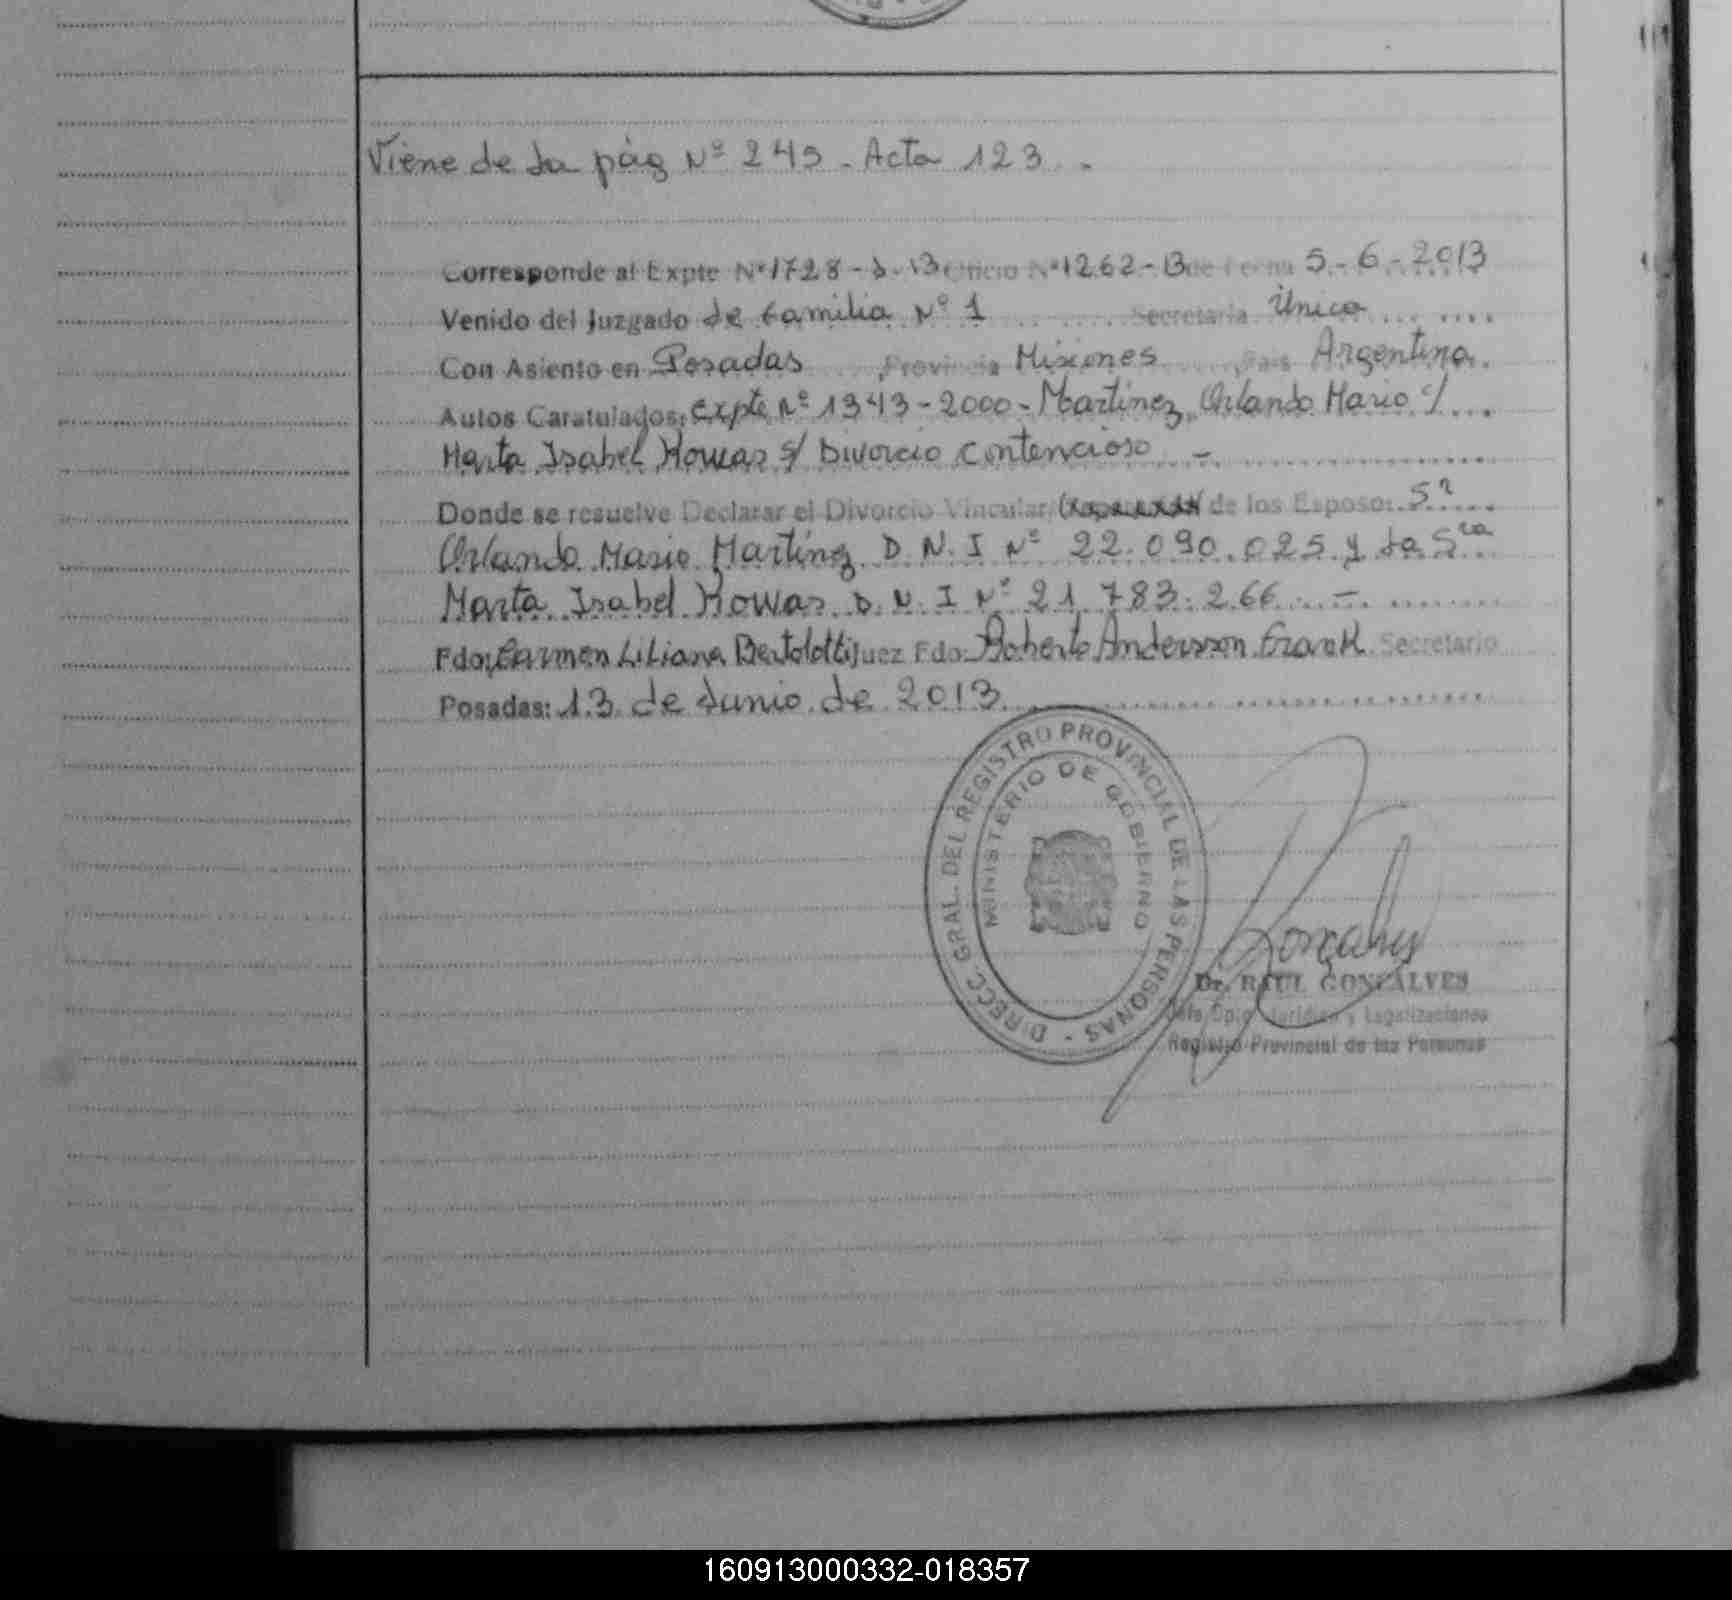 Viene de la pág Nº 249 - Acta 123 -
Corresponde al Expte Nº 1728-D-13 Oficio Nº 1262-13 de Fecha 5-6-2013
Venido del Juzgado de familia Nº 1 Secretaria Única
Con Asiento en Posadas, Provincia Misiones, País Argentina
Autos Caratulados: Expte Nº 1343-2000 - Martinez, Orlando Mario c/
Marta Isabel Kowas s/ Divorcio contencioso -
Donde se resuelve Declarar el Divorcio Vincular de los Esposo: Sr
Orlando Mario Martinez D.N.I Nº 22.090.025 y la Sra
Marta Isabel Kowas D.N.I Nº 21.783.266 -
Fdo: Carmen Liliana Bertolotti Juez Fdo: Roberto Andersson Frank Secretario
Posadas: 13 de Junio de 2013
DIRECC. GRAL. DEL REGISTRO PROVINCIAL DE LAS PERSONAS -
MINISTERIO DE GOBIERNO
Dr. RAUL GONCALVES
Jefe Dpto. Jurídico y Legalizaciones
Registro Provincial de las Personas
160913000332-018357